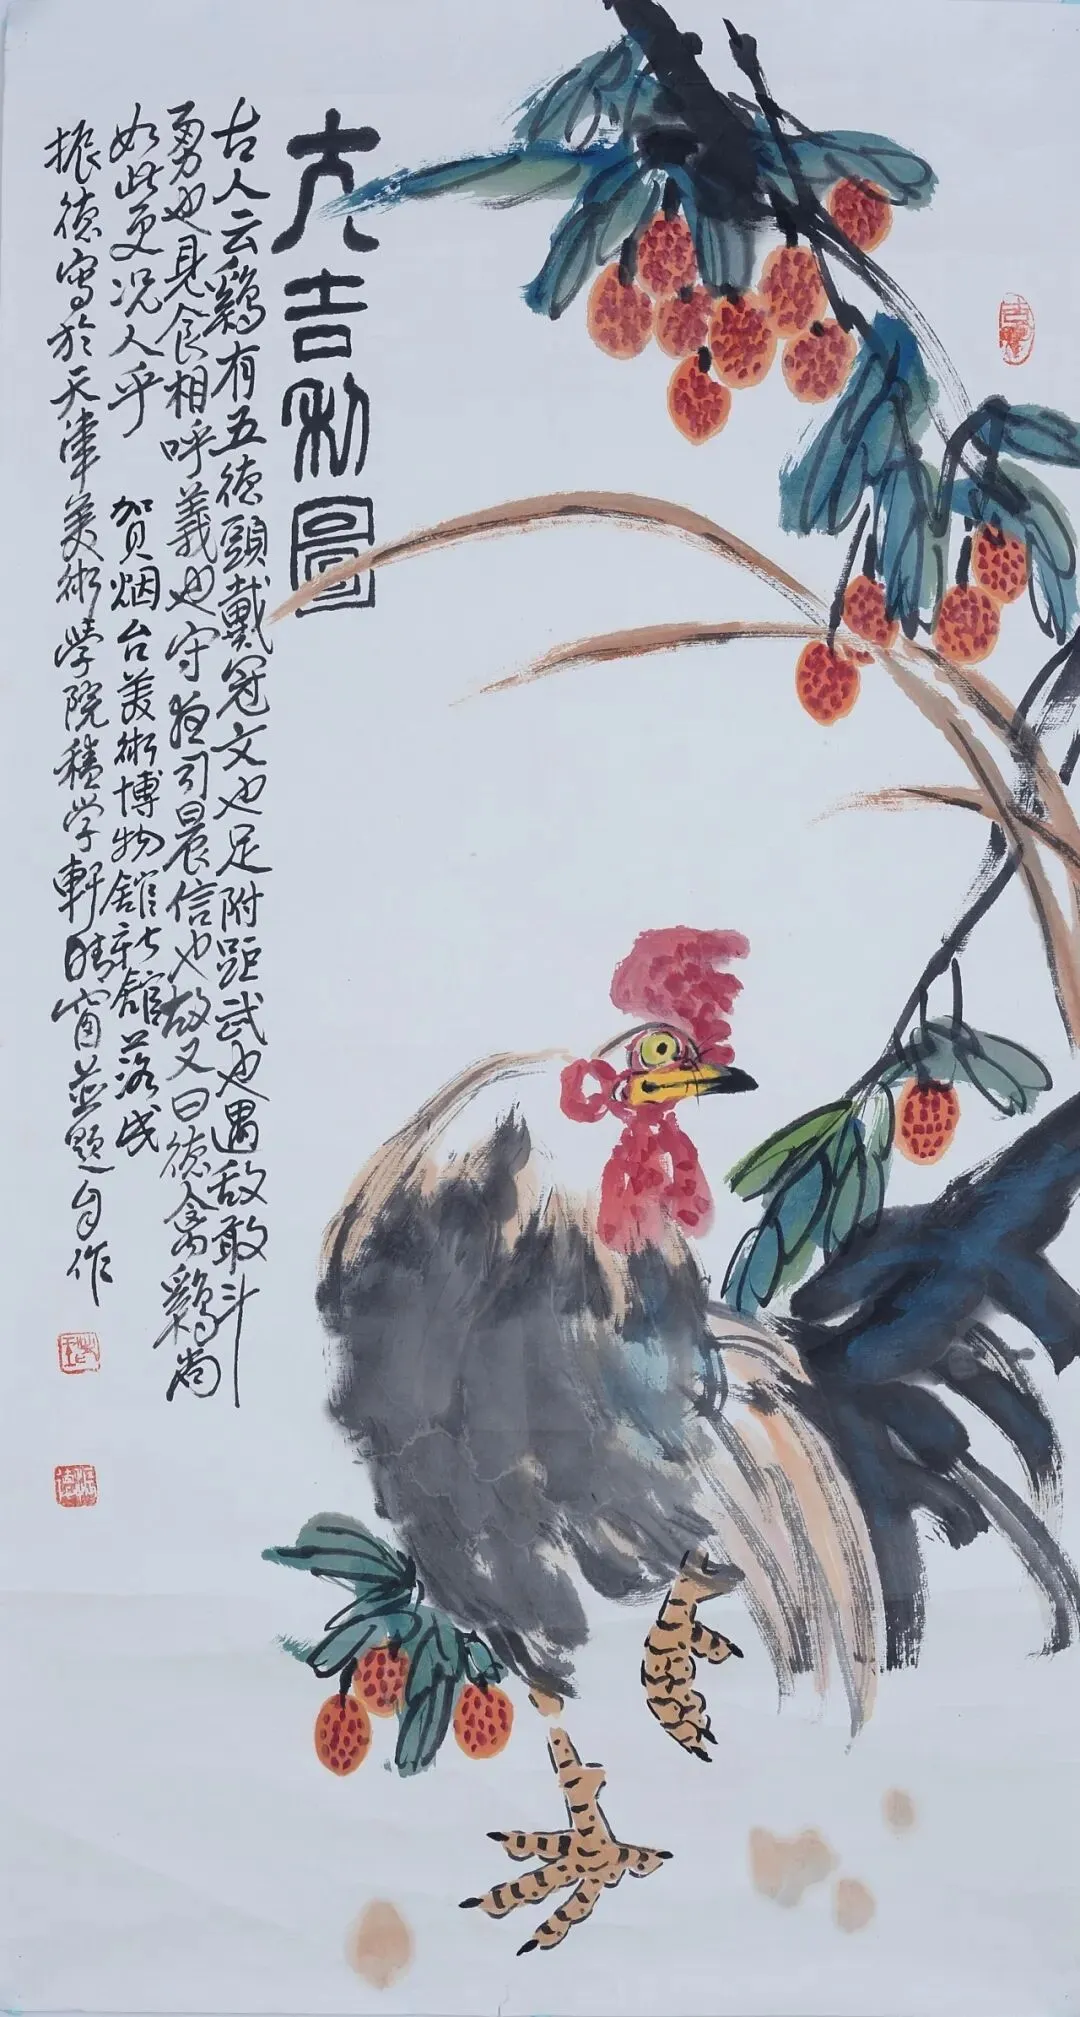 大吉利圖
古人云鷄有五德頭戴冠文也足附距武也遇敌敢斗
勇也見食相呼義也守夜司晨信也故又曰德禽鷄尚
如此更况人乎
賀烟台美術博物館新館落成
振德寫於天津美術學院積学軒晴窗並題自作
振德